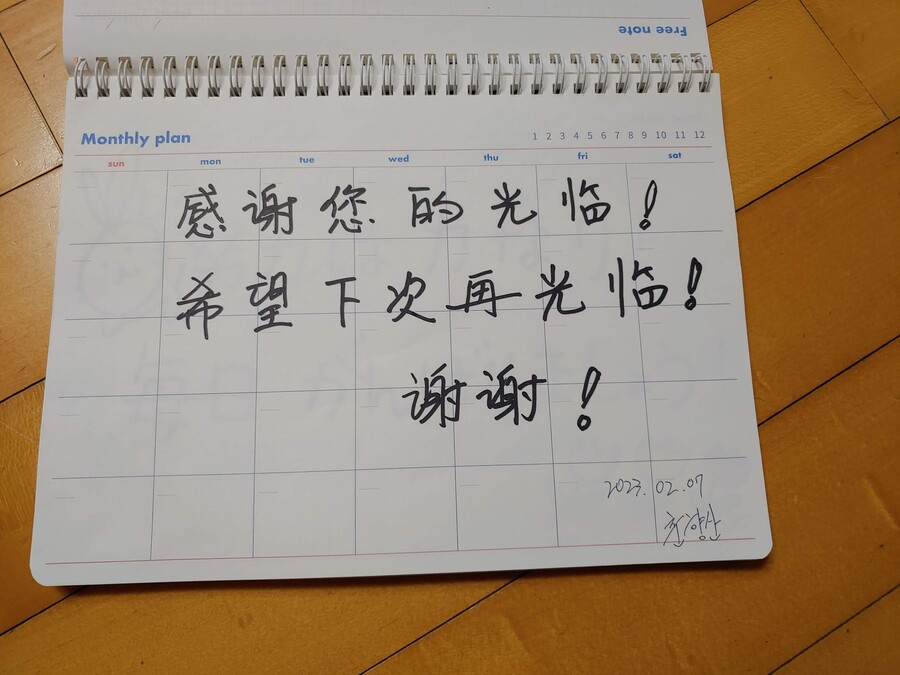 Free note
Monthly plan
1 2 3 4 5 6 7 8 9 10 11 12
sun mon tue wed thu fri sat
感谢您的光临!
希望下次再光临!
谢谢!
2023.02.07
천향산